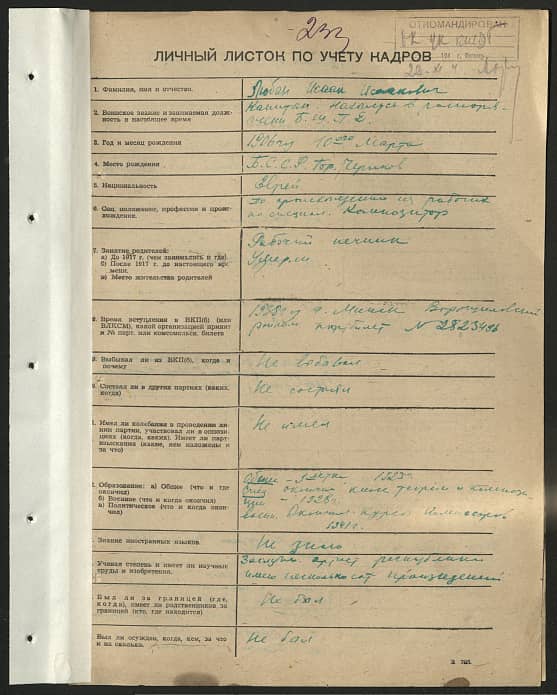 233
ОТКОМАНДИРОВАН
ЛИЧНЫЙ ЛИСТОК ПО УЧЕТУ КАДРОВ
1. Фамилия, имя и отчество.
Любан Исаак Исаакович
2. Воинское звание и занимаемая долж-
ность в настоящее время
Капитан. Нахожусь в распоря-
жении Б.Ш.П.Д.
3. Год и месяц рождения
1906 г 10го Марта
4. Место рождения
Б.С.С.Р. Гор. Чериков
5. Национальность
Еврей
6. Соц. положение, профессия и проис-
хождение.
По происхождению из рабочих
по специал. Композитор
7. Занятие родителей:
а) До 1917 г. (чем занимались и где).
б) После 1917 г. до настоящего вре-
мени.
в) Место жительства родителей
Рабочий печник
Умерли
8. Время вступления в ВКП(б) (или
ВЛКСМ), какой организацией принят
и № парт. или комсомольск. билета
г. Минск Ворошиловский
райком партбилет N
9. Выбывал ли из ВКП(б), когда и
почему
Не выбывал
Состоял ли в других партиях (каких,
когда)
Не состоял
Имел ли колебания в проведении ли-
нии партии, участвовал ли в оппози-
циях (когда, каких). Имеет ли парт-
взыскания (какие, кем наложены и
за что)
Не имел
Образование: а) Общее (что и где
окончил)
б) Военное (что и когда окончил)
в) Политическое (что и когда окон-
чил)
Общее - 1923 г.
окончил класс теории и компози-
ции - 1928 г.
Окончил курсы
1941 г.
Знание иностранных языков.
Не знаю
Ученая степень и имеет ли научные
труды и изобретения.
Заслуж. артист республики
имею несколько сот произведений
Был ли за границей (где,
когда), имеет ли родственников за
границей (кто, где находятся)
Не был
Был ли осужден, когда, кем, за что
и на сколько.
Не был